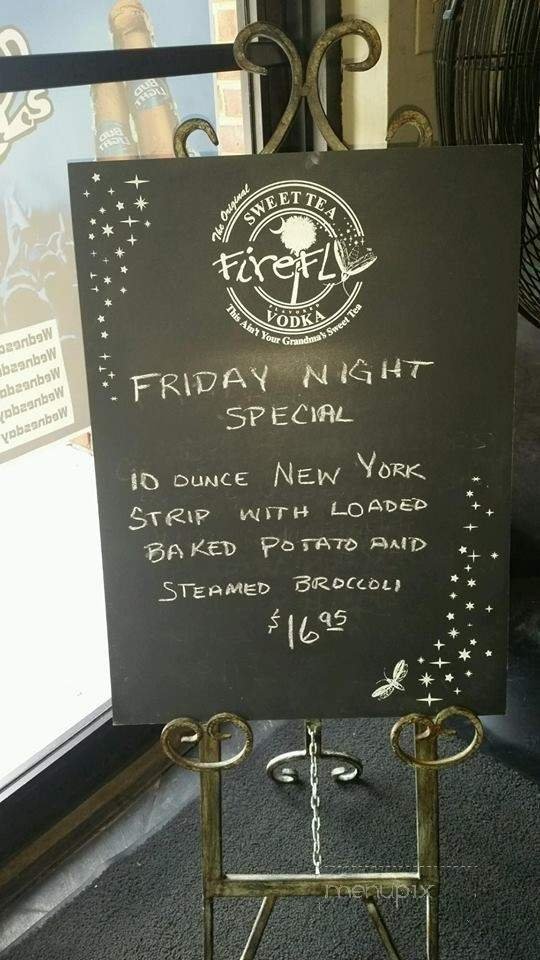 BUD LIGHT
BUD LIGHT
The Original
SWEET TEA
FireFLY
FLAVORED
VODKA
This Ain't Your Grandma's Sweet Tea
FRIDAY NIGHT
SPECIAL
10 OUNCE NEW YORK
STRIP WITH LOADED
BAKED POTATO AND
STEAMED BROCCOLI
$16.95
Wednesday
Wednesday
Wednesday
Wednesday
Wednesday
menupix